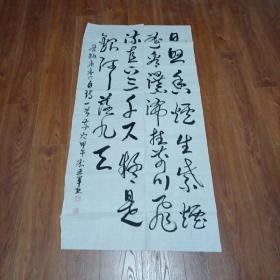 日照香爐生紫煙
遥看瀑布挂前川飛
流直下三千尺疑是
銀河落九天
李白詩一首 甲午